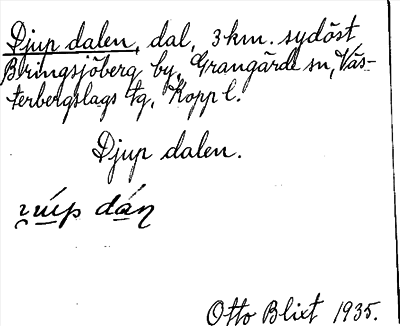 Djup dalen, dal, 3 km. sydöst
Bringsjöberg by, Grangärde sn, Väs-
terbergslags tg, Kopp l.
Djup dalen.
Otto Blixt 1935.